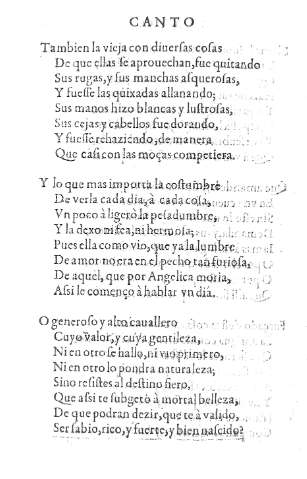 CANTO
Tambien la vieja con diuersas cosas
De que ellas se aprouechan, fue quitando
Sus rugas, y sus manchas asquerosas,
Y fuesse las quixadas allanando;
Sus manos hizo blancas y lustrosas,
Sus cejas y cabellos fue dorando,
Y fuesse rehaziendo, de manera
Que casi con las moças competiera.
Y lo que mas importa la costumbre
De verla cada dia, à cada cosa,
Vn poco à ligerò la pesadumbre,
Y la dexo ni fea, ni hermosa;
Pues ella como vio, que ya la lumbre
De amor no era en el pecho tan furiosa,
De aquel, que por Angelica moria,
Assi le començo à hablar vn dia.
O generoso y alto cauallero
Cuyo valor, y cuya gentileza,
Ni en otro se hallo, ni vno primero,
Ni en otro lo pondra naturaleza;
Sino resistes al destino fiero,
Que assi te subgetò à mortal belleza,
De que podran dezir, que te à valido,
Ser sabio, rico, y fuerte, y bien nascido?